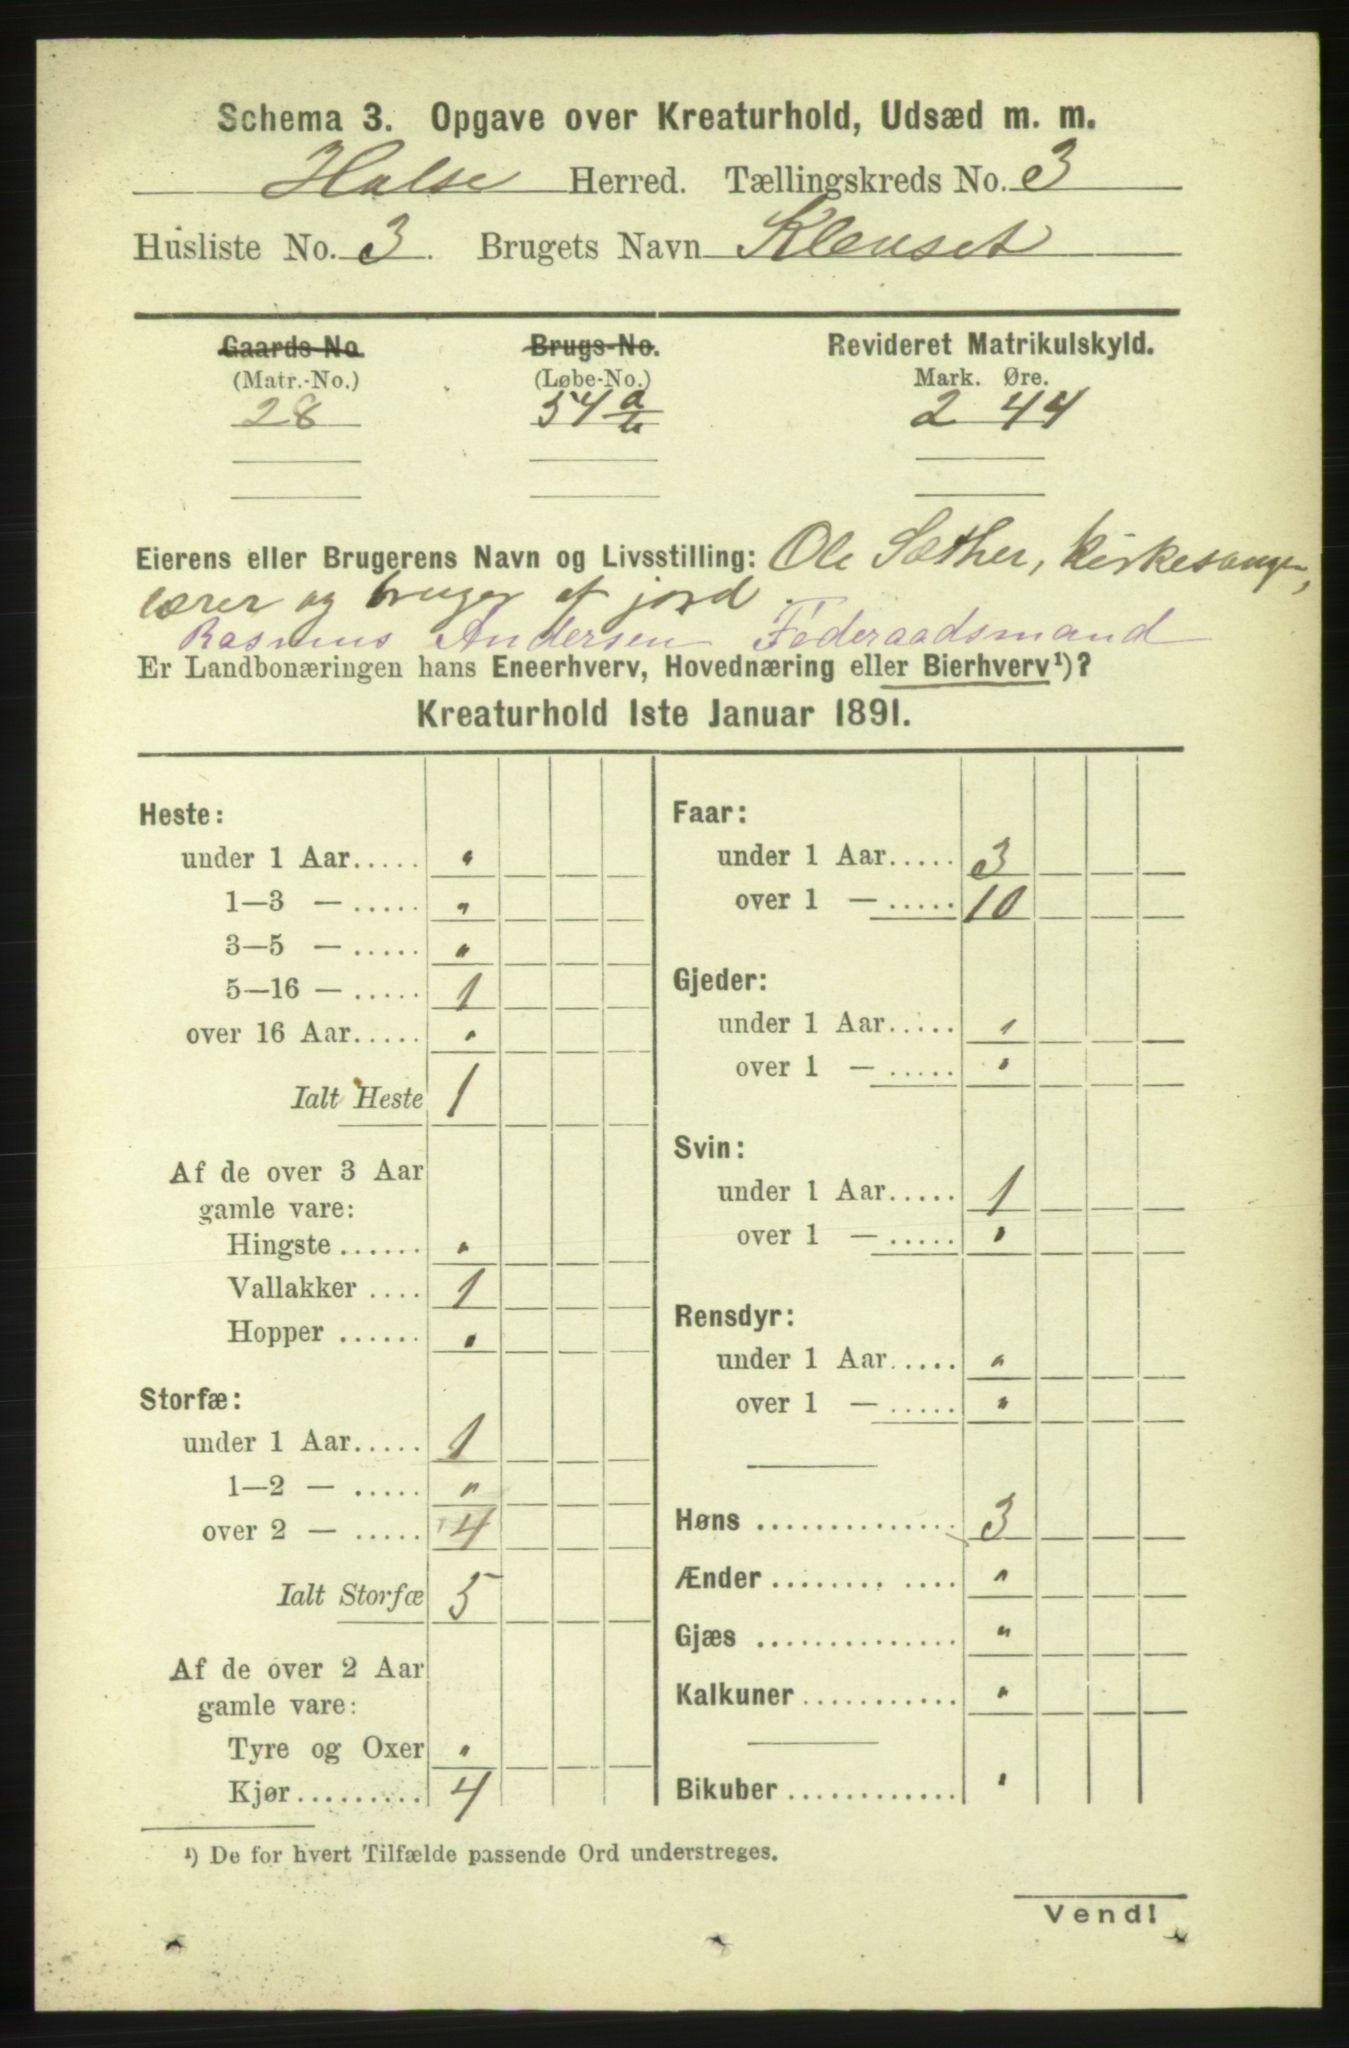 Schema 3. Opgave over Kreaturhold, Udsæd m. m.
Halse Herred. Tællingskreds No. 3
Husliste No. 3. Brugets Navn Klevset
Gaards-No. Brugs-No. Revideret Matrikulskyld.
(Matr.-No.) (Løbe-No.) Mark. Øre.
28 54 a 2 44
Eierens eller Brugerens Navn og Livsstilling: Ole Sæther, kirkesanger,
lærer og bruger af jord.
Rasmus Andersen Føderaadsmand
Er Landbonæringen hans Eneerhverv, Hovednæring eller Bierhverv¹)?
Kreaturhold 1ste Januar 1891.
Heste:
under 1 Aar..... "
1—3 — ..... "
3—5 — ..... "
5—16 — ..... 1
over 16 Aar..... "
Ialt Heste 1
Af de over 3 Aar
gamle vare:
Hingste ...... "
Vallakker .... 1
Hopper ...... "
Storfæ:
under 1 Aar..... 1
1—2 — ..... "
over 2 — ..... 4
Ialt Storfæ 5
Af de over 2 Aar
gamle vare:
Tyre og Oxer "
Kjør......... 4
Faar:
under 1 Aar..... 3
over 1 — ..... 10
Gjeder:
under 1 Aar..... "
over 1 — ..... "
Svin:
under 1 Aar..... 1
over 1 — ..... "
Rensdyr:
under 1 Aar..... "
over 1 — ..... "
Høns ............... 3
Ænder........ .... "
Gjæs .............. "
Kalkuner........... "
Bikuber ............ "
¹) De for hvert Tilfælde passende Ord understreges.
Vend!